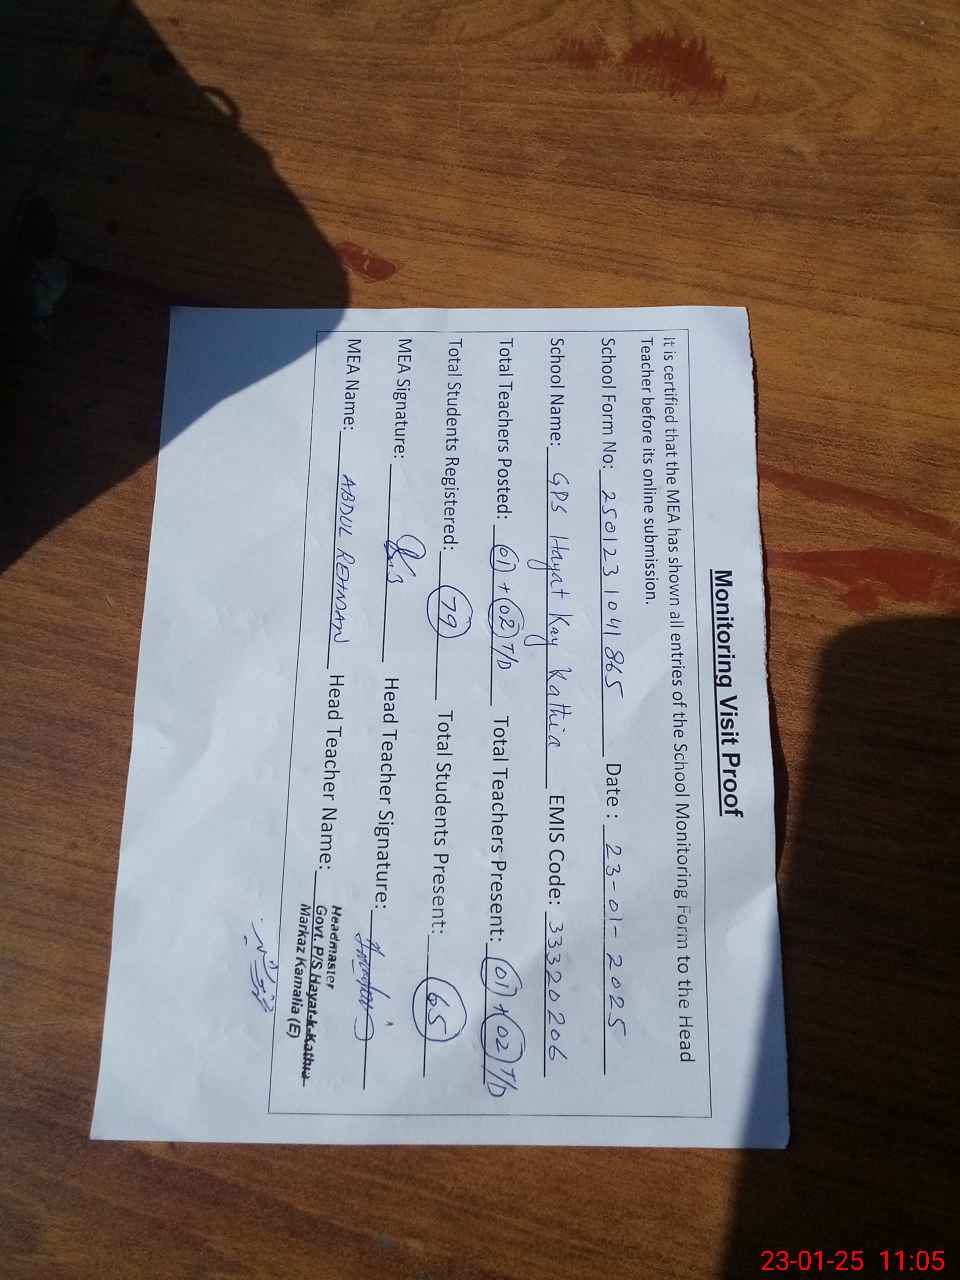 Monitoring Visit Proof
It is certified that the MEA has shown all entries of the School Monitoring Form to the Head
Teacher before its online submission.
School Form No: 250123 1041865 Date : 23-01-2025
School Name: GPS Hayat Kay Kathia EMIS Code: 33320206
Total Teachers Posted: 01 + 02 T/D Total Teachers Present: 01 + 02 T/D
Total Students Registered: 79 Total Students Present: 65
MEA Signature: Head Teacher Signature:
MEA Name: ABDUL REHMAN Head Teacher Name:
Headmaster
Govt. P/S Hayat-k-Kathia
Markaz Kamalia (E)
23-01-25 11:05